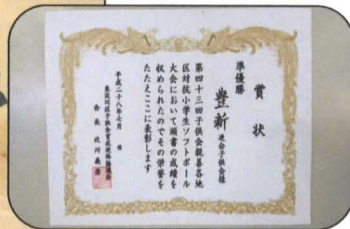 賞状
準優勝
豊新連合子供会様
第四十三回子供会親善各地
区対抗小学生ソフトボール
大会において頭書の成績を
収められたのでその栄誉を
たたえここに表彰します
平成二十八年七月 日
東淀川区子供会育成連絡協議会
会長